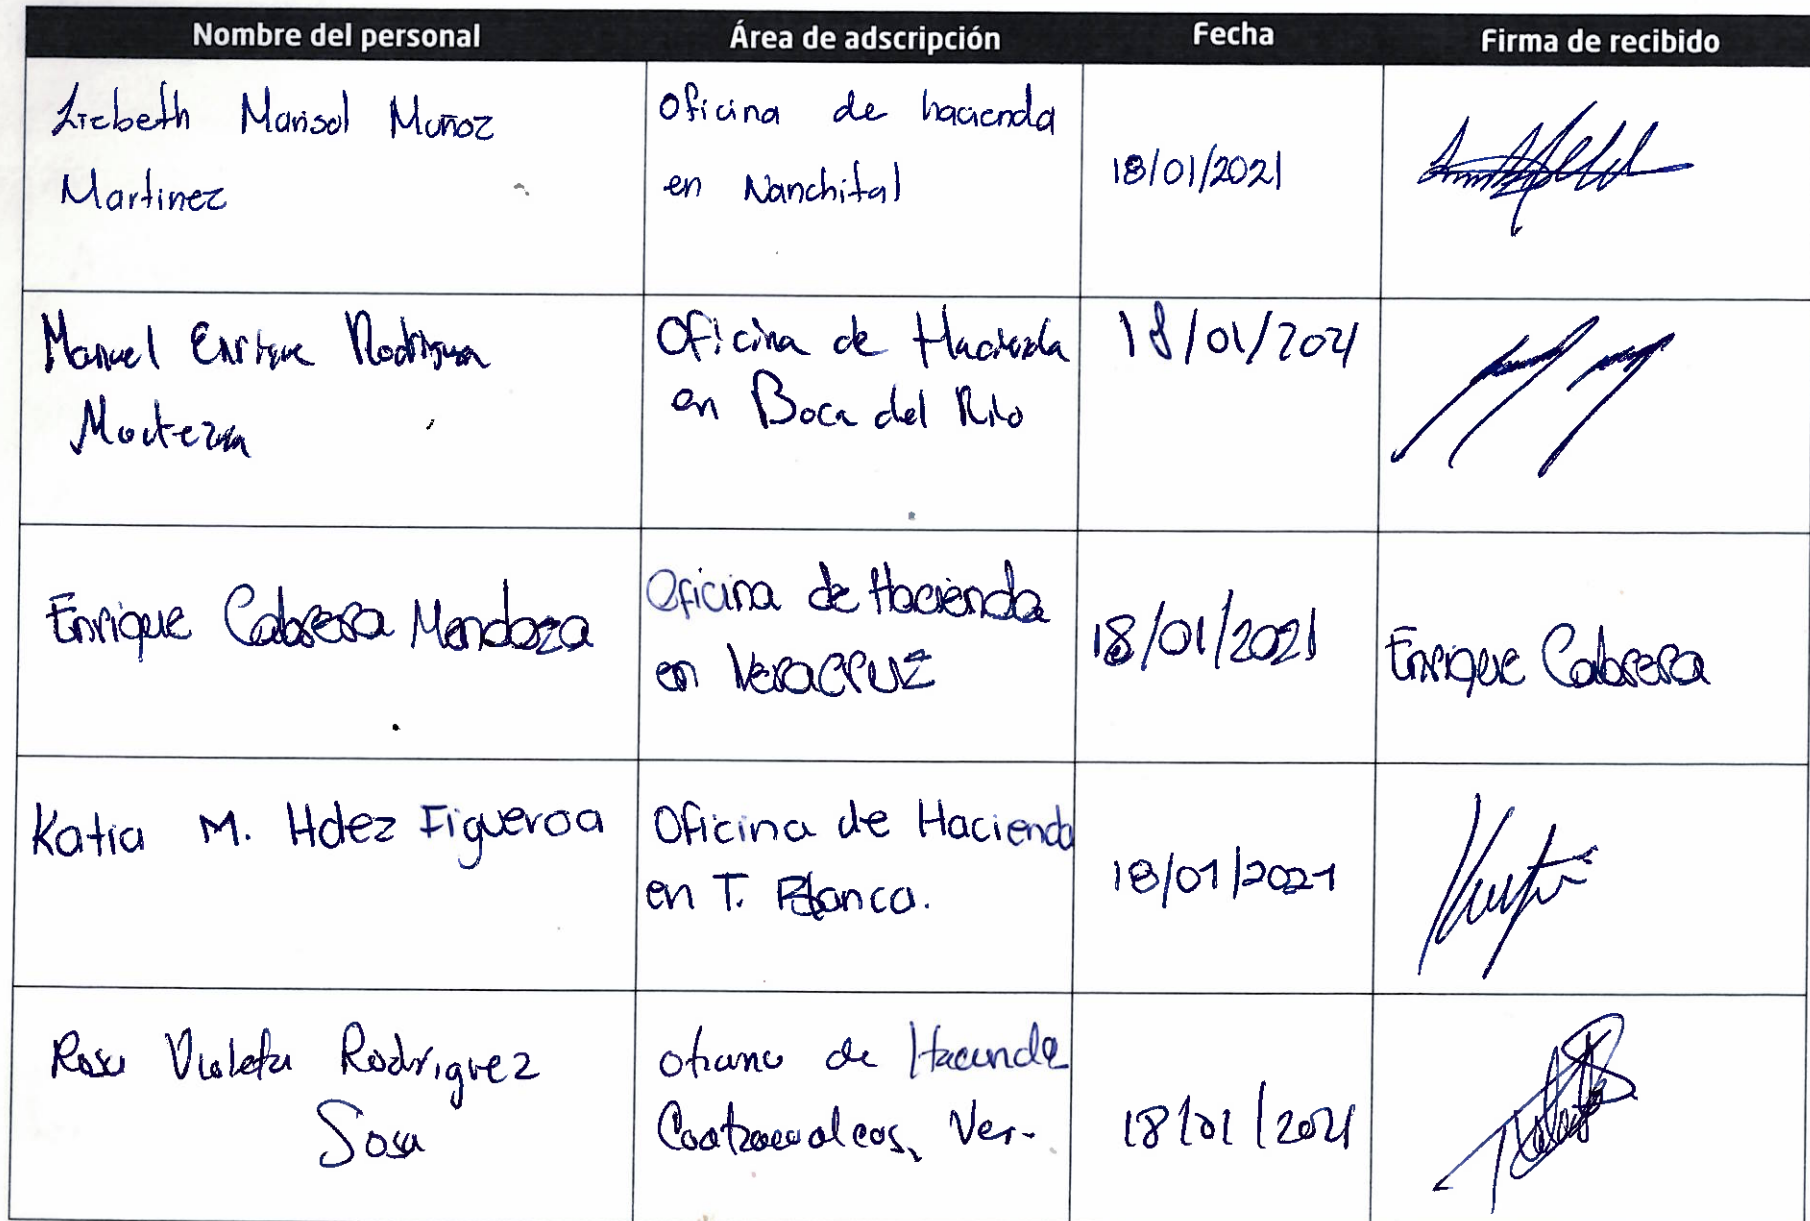 Nombre del personal Área de adscripción Fecha Firma de recibido
Lizbeth Marisol Muñoz
Martinez
Oficina de hacienda
en Nanchital
18/01/2021
Manuel Enrique Rodriguez
Oficina de Hacienda
en Boca del Río
18/01/2021
Enrique Cabrera Mendoza
Oficina de Hacienda
en Veracruz
18/01/2021
Enrique Cabrera
Katia M. Hdez Figueroa
Oficina de Hacienda
en T. Blanca.
18/01/2021
Rosa Violeta Rodriguez
Sosa
oficina de Hacienda
Coatzacoalcos, Ver.
18/01/2021